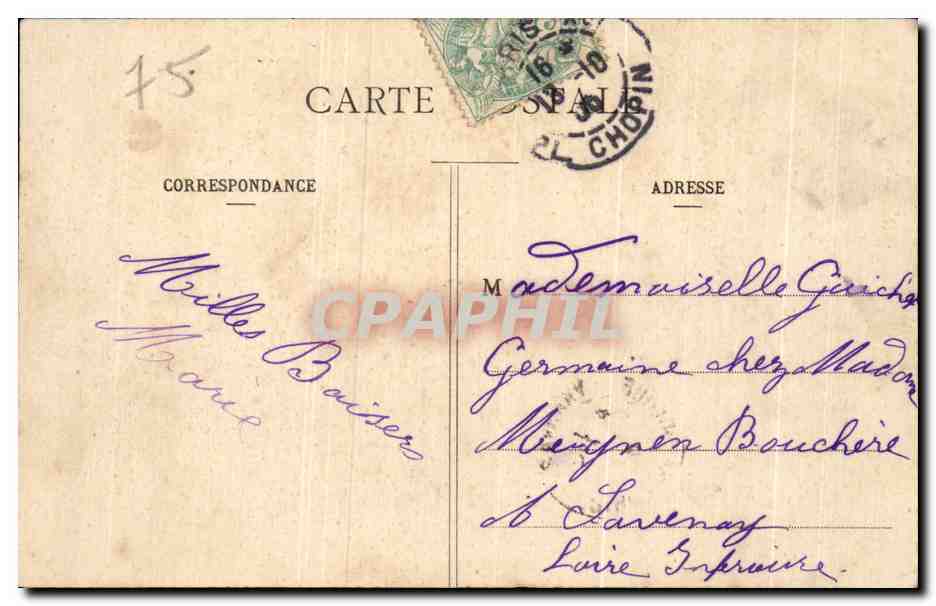 75
CARTE POSTALE
PL. CHOPIN
CORRESPONDANCE
ADRESSE
Milles Baisers
Marie
Mademoiselle
Germaine chez Madame
Meignen Bouchère
à Savenay
Loire Inférieure
CPAPHIL